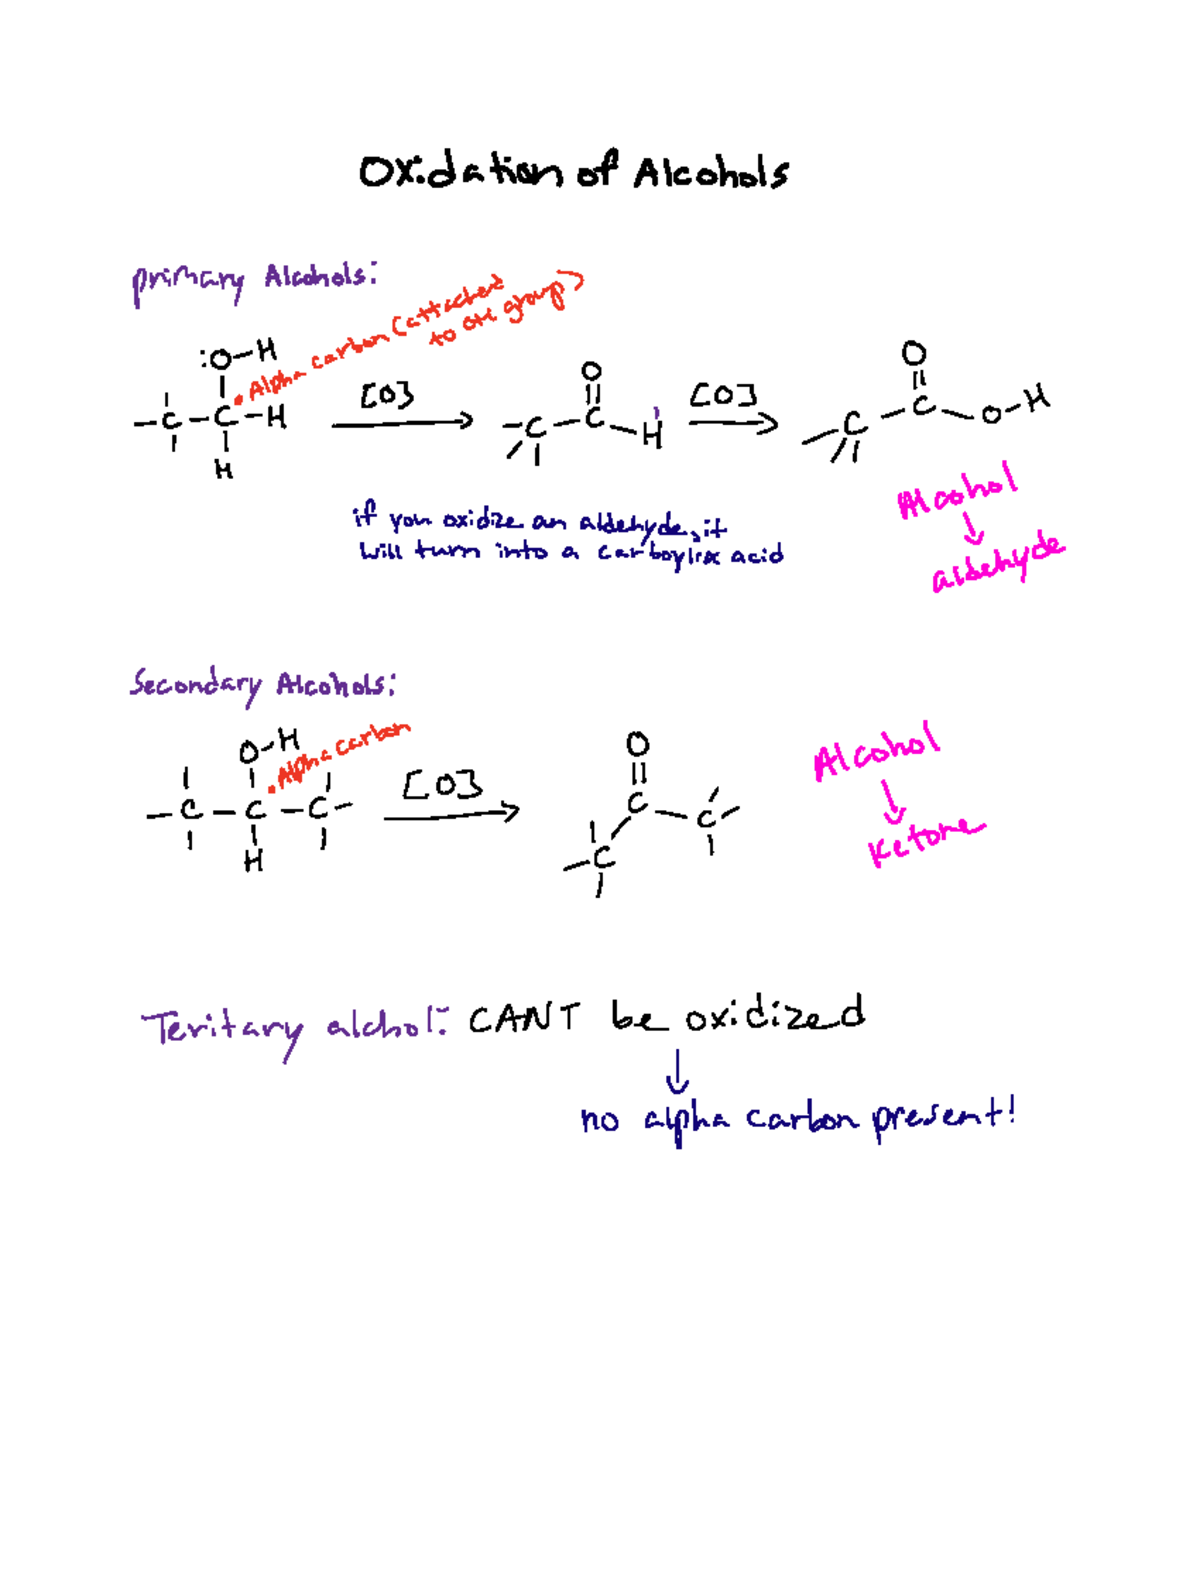 Oxidation of Alcohols
primary Alcohols:
Alpha carbon (attached
to OH group)
:O-H
-C-C-H
H
[O]
O
C
-C
H
[O]
O
C
C
O-H
if you oxidize an aldehyde, it
will turn into a carboylix acid
Alcohol
↓
aldehyde
Secondary Alcohols:
Alpha carbon
O-H
-C-C-C-
H
[O]
O
C
C
-C
Alcohol
↓
Ketone
Teritary alchol: CANT be oxidized
↓
no alpha carbon present!